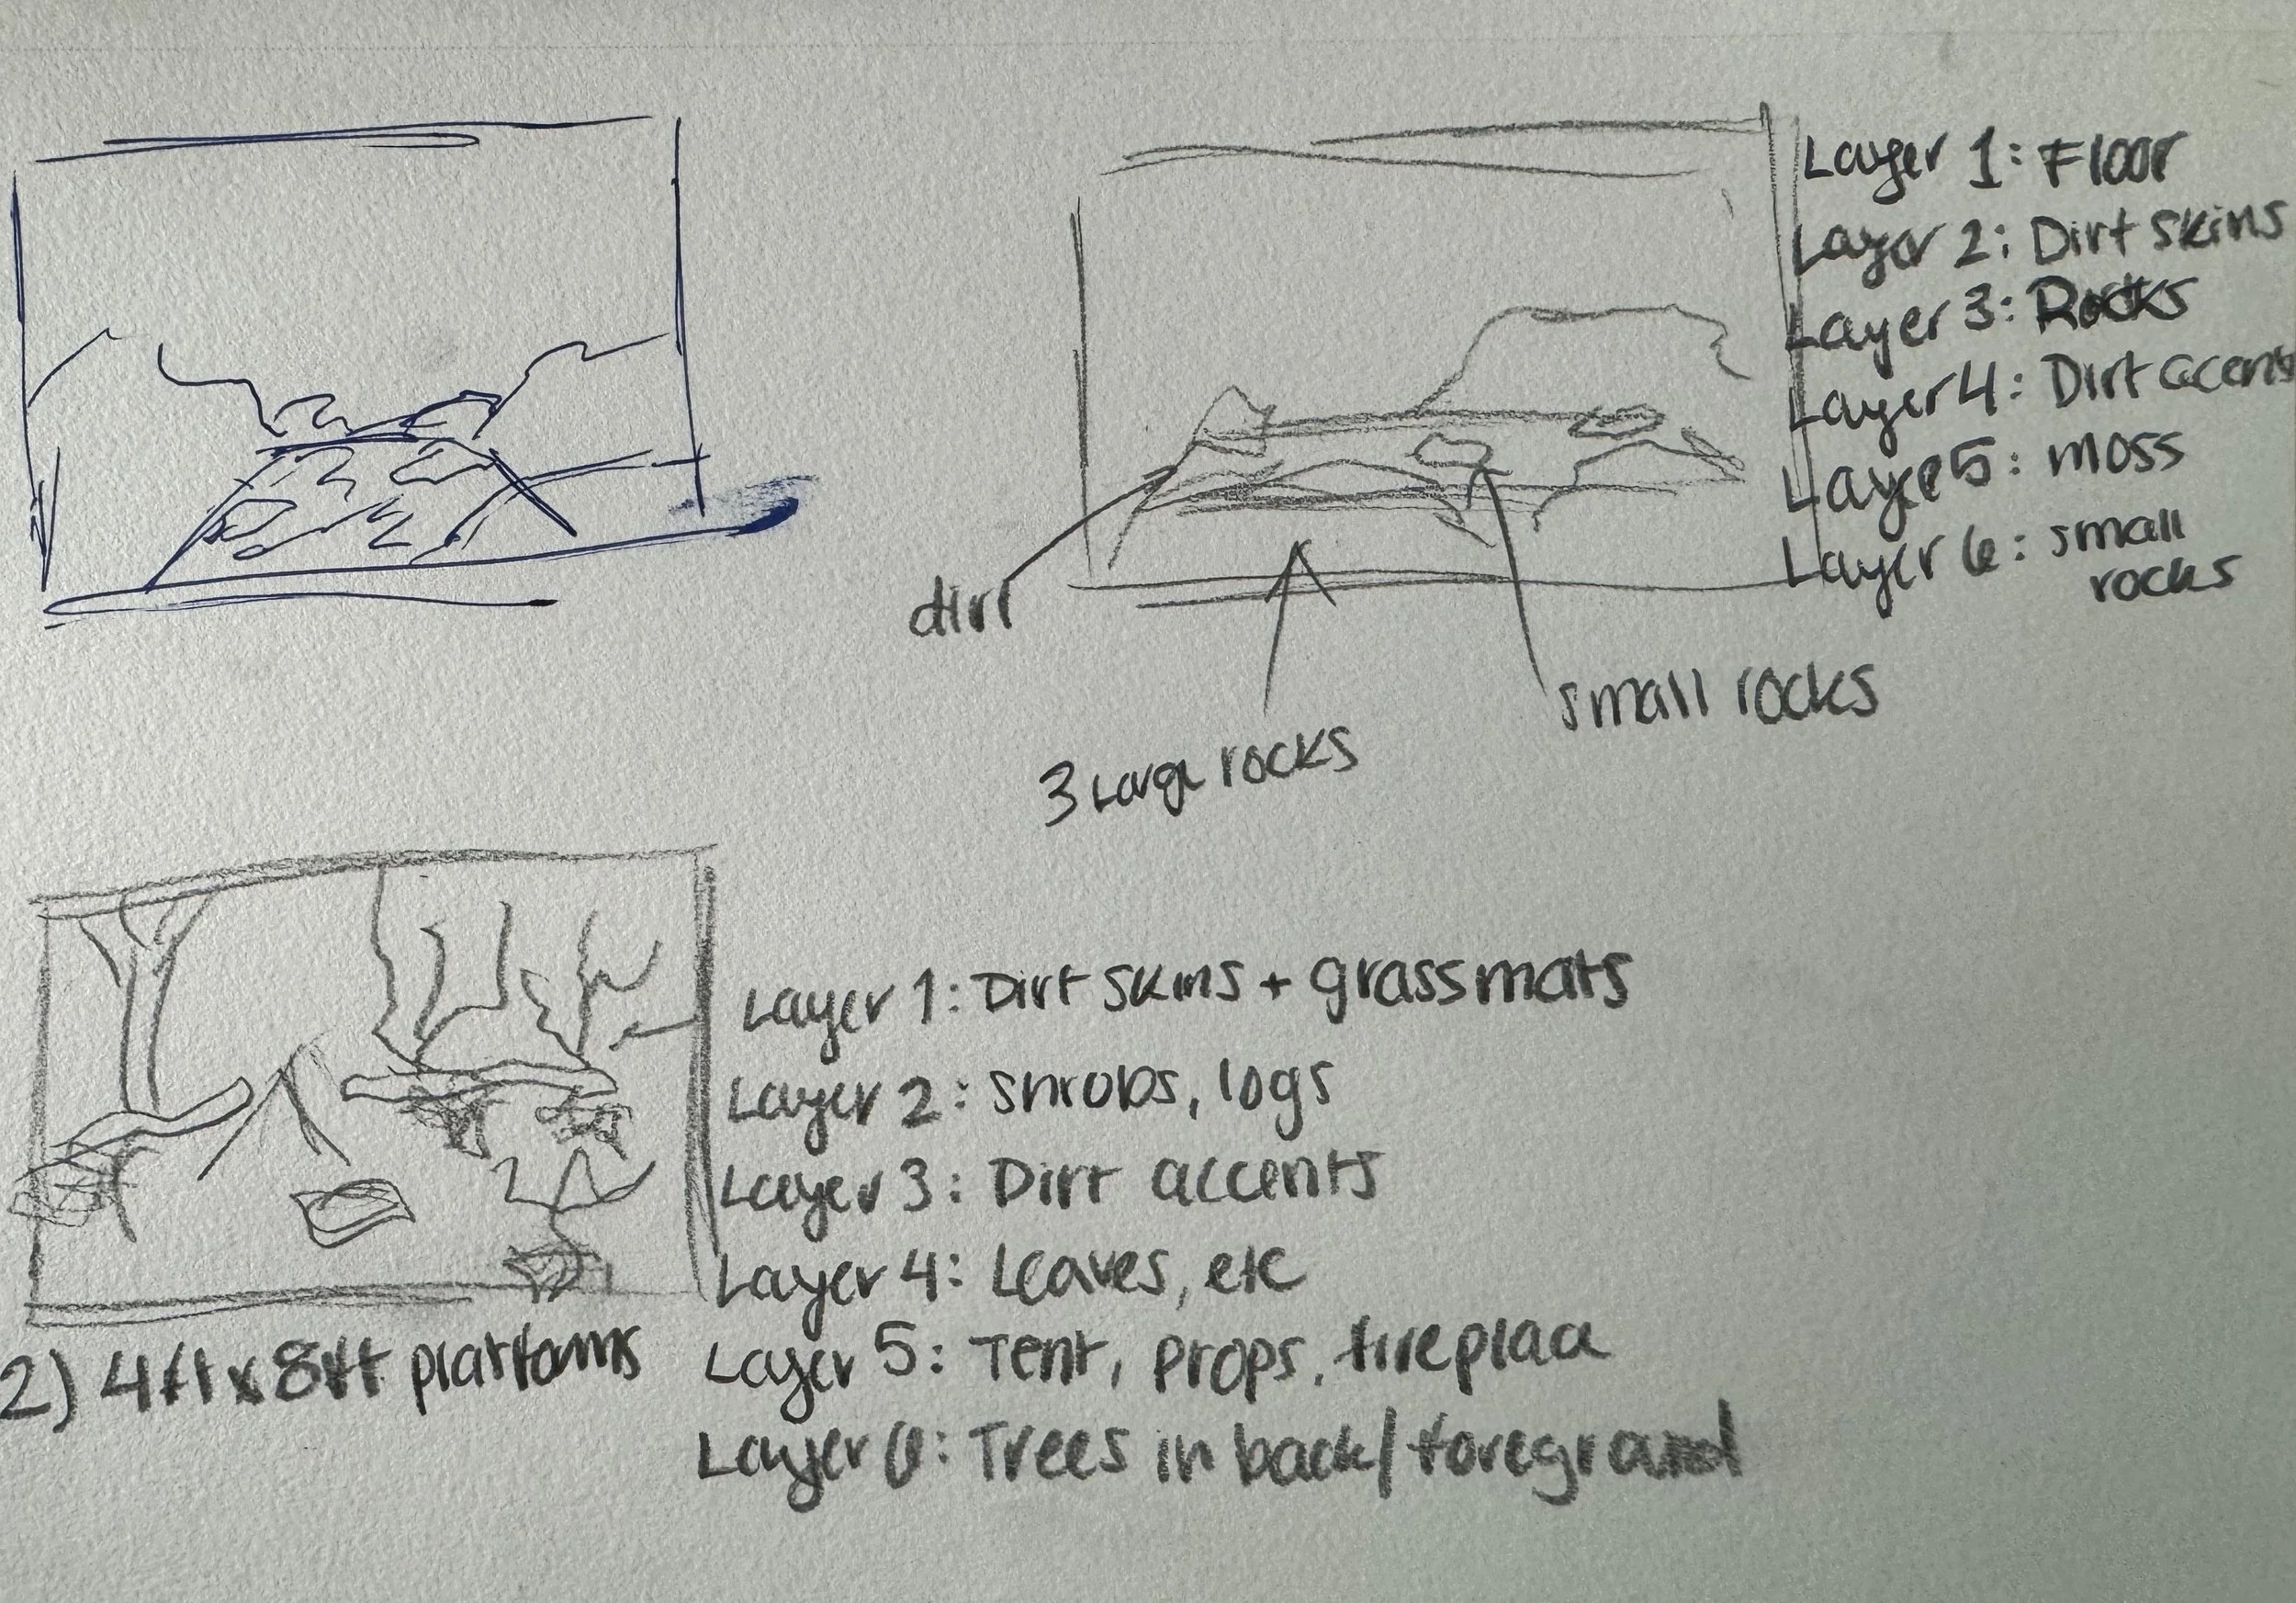 Layer 1: Floor
Layer 2: Dirt skins
Layer 3: Rocks
Layer 4: Dirt accents
Layer 5: moss
Layer 6: small
rocks
dirt
small rocks
3 Large rocks
Layer 1: Dirt skins + grassmats
Layer 2: shrubs, logs
Layer 3: Dirt accents
Layer 4: Leaves, etc
Layer 5: Tent, props, fireplace
Layer 6: Trees in back/foreground
2) 4ft x 8ft platforms